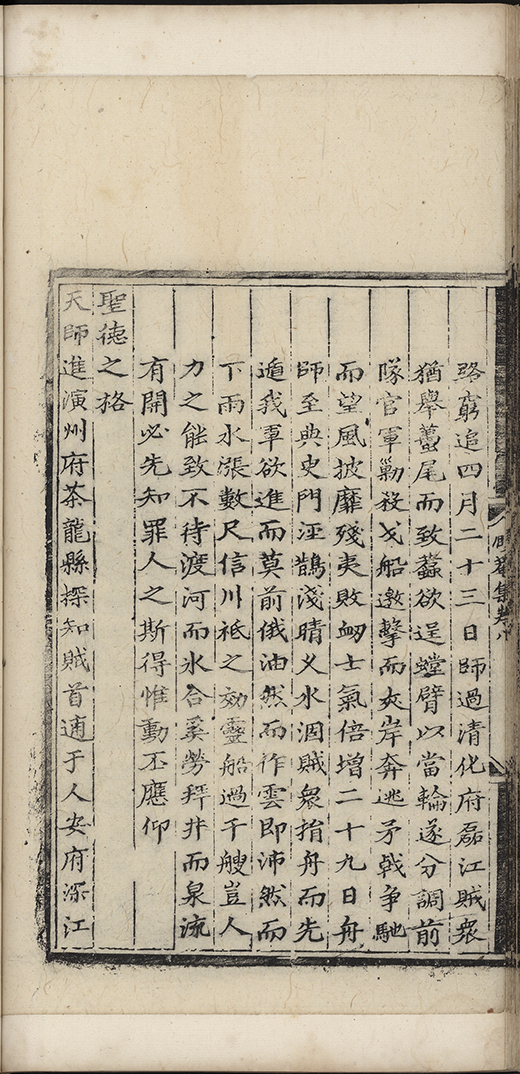 路窮追四月二十三日師過清化府磊江賊衆
猶舉蠆尾而致蠚欲逞螳臂以當輪遂分調前
隊官軍勦殺戈船邀擊而夾岸奔逃矛戟争馳
而望風披靡殘夷敗衂士氣倍增二十九日舟
師至典史門涇鵲淺晴乂水涸賊衆捨舟而先
遁我軍欲進而莫前俄油然而作雲即沛然而
下雨水漲數尺信川祗之効靈船過千艘豈人
力之能致不待渡河而氷合奚勞拜井而泉流
有開必先知罪人之斯得惟動丕應仰
聖徳之格
天師進演州府茶龍縣探知賊首遁于人安府深江
集卷八